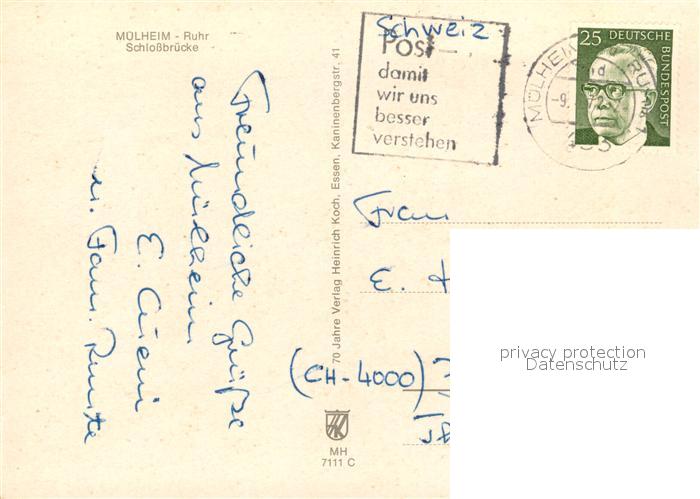 MÜLHEIM - Ruhr
Schloßbrücke
Freundliche Grüße
aus Mülheim
E.
u. Fam.
70 Jahre Verlag Heinrich Koch, Essen, Kaninenbergstr. 41
MH
7111 C
Schweiz
Post
damit
wir uns
besser
verstehen
MÜLHEIM
433
25 DEUTSCHE
BUNDESPOST
Frau
E.
(CH-4000)
privacy protection
Datenschutz